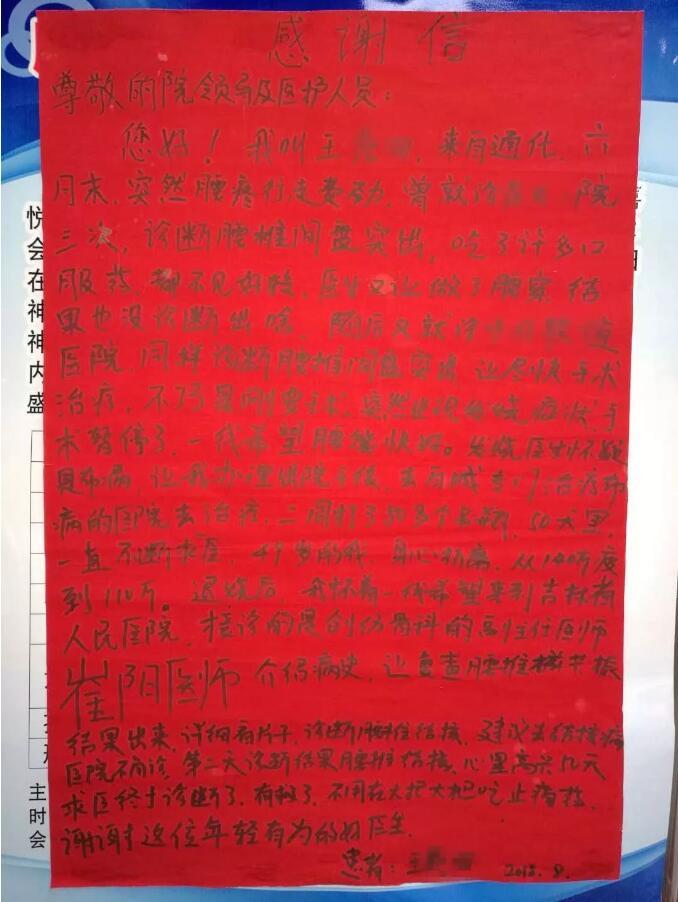 感谢信
尊敬的院领导及医护人员：
您好！我叫王 ，来自通化，六
月末，突然腰疼行走费劲，曾就诊 院
三次，诊断腰椎间盘突出，吃了许多口
服药，都不见好转，医生又让做了胸穿，结
果也没诊断出啥，随后又就诊
医院，同样诊断腰椎间盘突出，让尽快手术
治疗，不巧是刚要手术，突然出现发烧症状，手
术暂停了，一线希望腰能快好。发烧医生怀疑
是布病，让我办理出院手续，去白城专门治疗布
病的医院去治疗，二周打了50多个吊瓶，50天里，
一直不断求医，49岁的我，身心折磨，从140斤瘦
到110斤。退烧后，我怀着一线希望来到吉林省
人民医院，接诊的是创伤骨科的副主任医师
崔阳医师 介绍病史，让复查腰椎磁共振
结果出来，详细看片子，诊断腰椎结核，建议去结核病
医院确诊，第二天诊断结果腰椎结核，心里高兴几天
求医终于诊断了，有救了，不用在大把大把吃止痛药，
谢谢这位年轻有为的好医生
患者：王 2018.8.
悦
会
在
神
神
内
盛
主
时
会